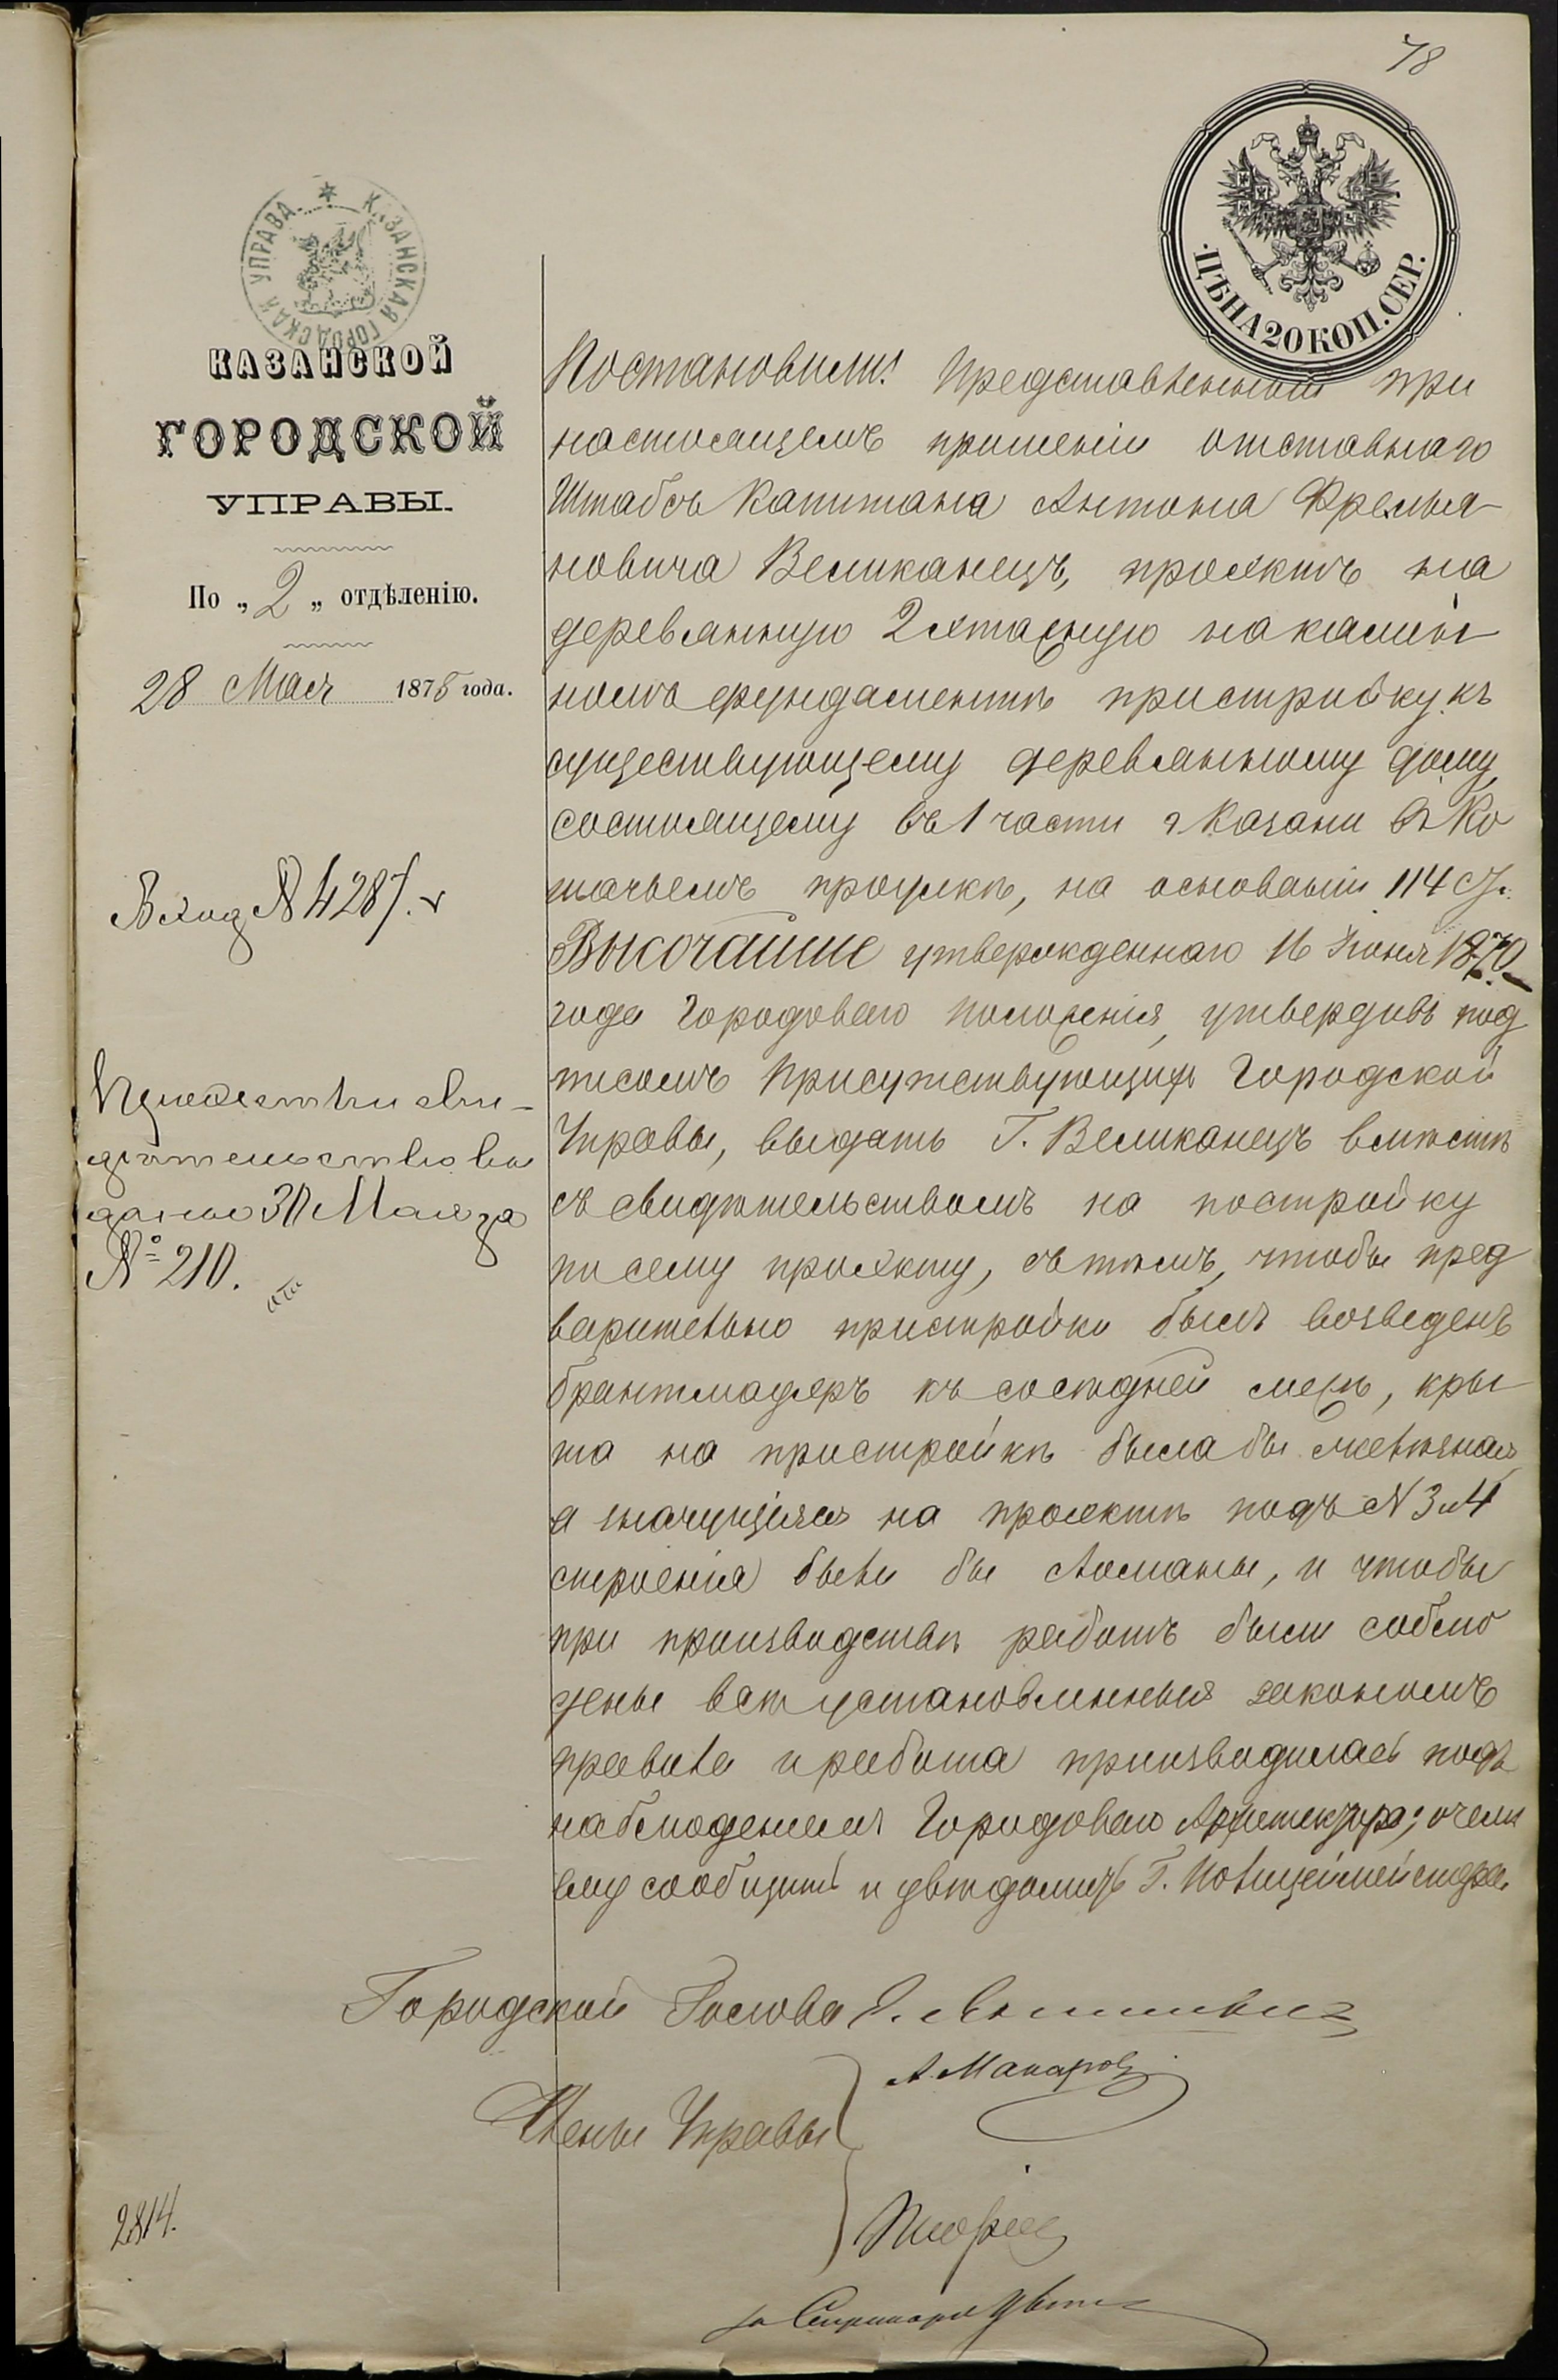 78
КАЗАНСКАЯ ГОРОДСКАЯ УПРАВА
ЦѢНА 20 КОП. СЕР.
КАЗАНСКОЙ
ГОРОДСКОЙ
УПРАВЫ.
По „2„ отдѣленію.
28 Мая 1875 года.
Вход № 4287.
сви-
дѣтельство вы
дано 30 Мая за
№ 210.
Постановили: Представленный при
настоящемъ прошеніи отставнаго
Штабсъ Капитана Антона
новича Великанецъ, проэктъ на
деревянную 2хэтажную на камен
номъ фундаментѣ пристройку къ
существующему деревянному дому,
состоящему въ 1 части г Казани въ Ко
шачьемъ проулкѣ, на основаніи 114 ст.
Высочайше утвержденнаго 16 Іюня 1870
года Городоваго Положенія, утвердивъ под
писомъ Присутствующихъ Городской
Управы, выдать Г. Великанецъ вмѣстѣ
съ свидѣтельствомъ на постройку
по сему проэкту, съ тѣмъ, чтобы пред
варительно пристройки былъ возведенъ
брантмауеръ къ сосѣдней межѣ, кры
ша на пристройкѣ была бы желѣзная,
а значущіяся на проэктѣ подъ № 3 и 4
строенія были бы сломаны, и чтобы
при производствѣ работъ были соблю
дены всѣ установленныя закономъ
правила и работа производилась подъ
наблюденіемъ Городоваго Архитектора; о чемъ
ему сообщить и увѣдомить Г. Полицеймейстера.
Городской Голова
А. Макаровъ
Члены Управы
за Секретаря
2814.